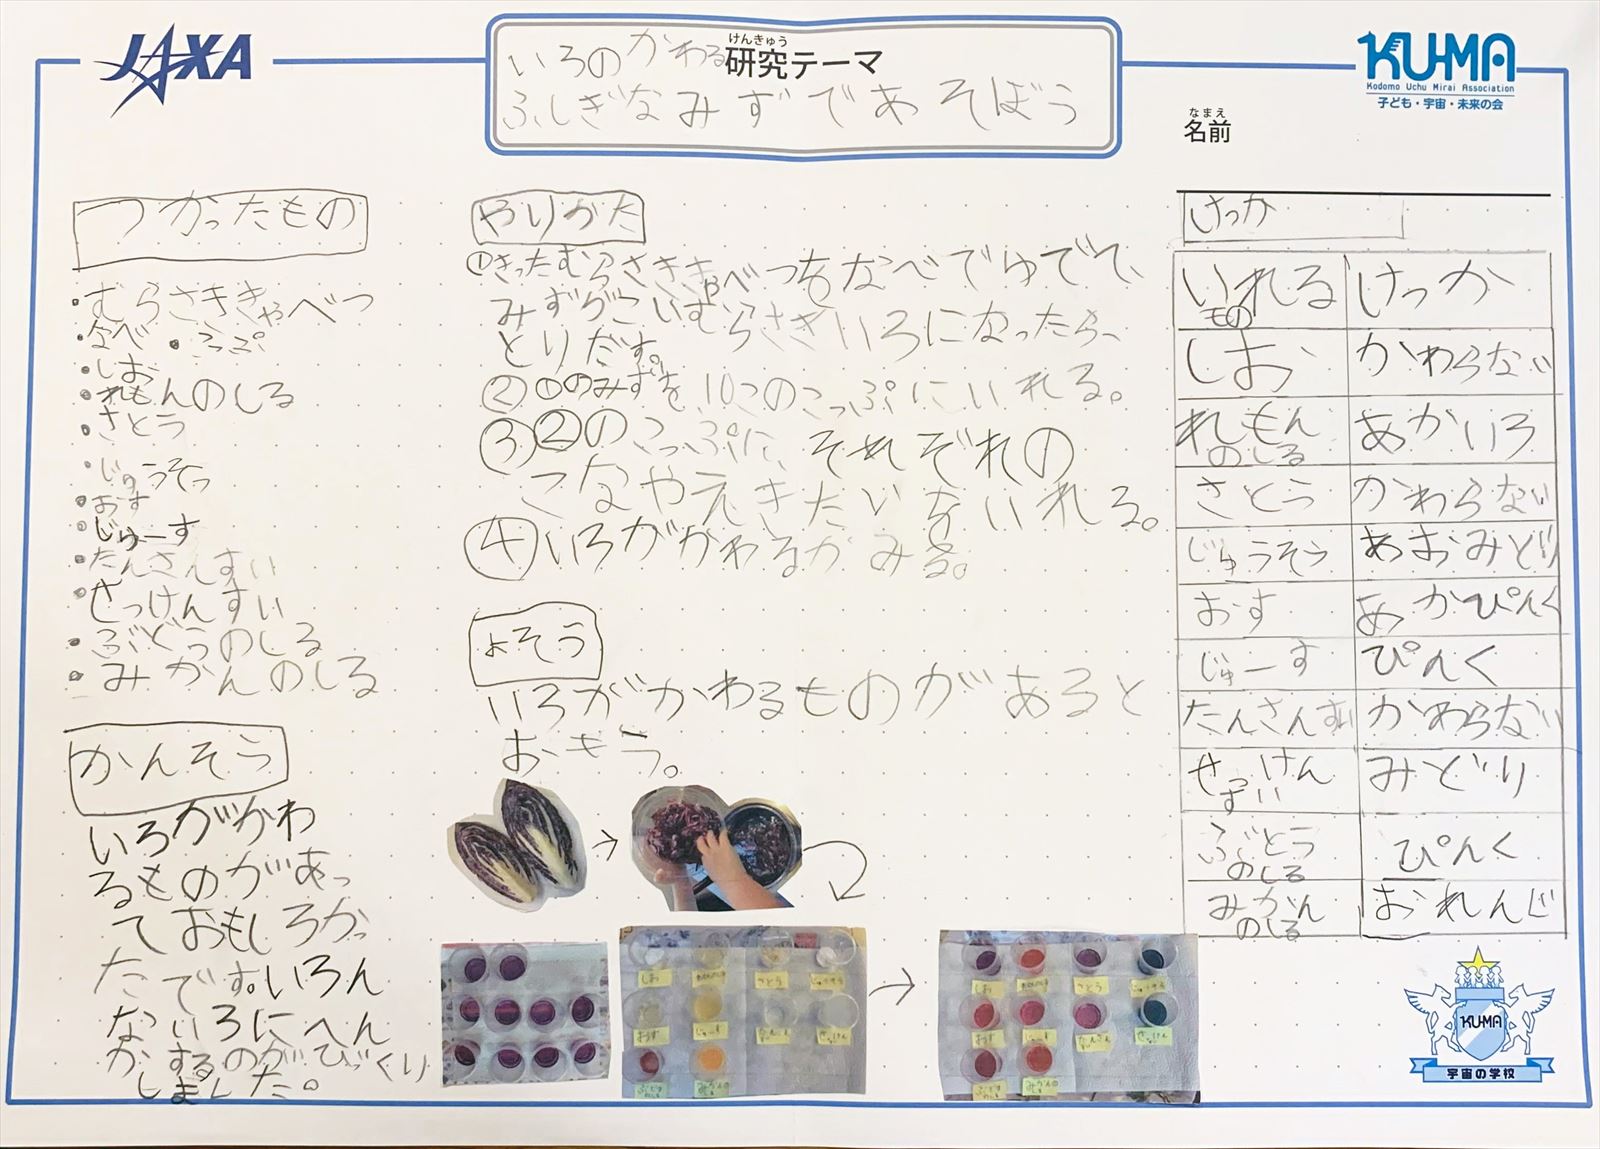 JAXA
けんきゅう
研究テーマ
いろのかわる
ふしぎなみずであそぼう
KU-MA
Kodomo Uchu Mirai Association
子ども・宇宙・未来の会
なまえ
名前
つかったもの
・むらさききゃべつ
・なべ ・こっぷ
・しお
・れもんのしる
・さとう
・じゅうそう
・おす
・じゅーす
・たんさんすい
・せっけんすい
・ぶどうのしる
・みかんのしる
かんそう
いろがかわ
るものがあっ
ておもしろかっ
たです。いろん
ないろにへん
かするのがびっくり
しました。
やりかた
①きったむらさききゃべつをなべでゆでて、
みずがこいむらさきいろになったら、
とりだす。
②①のみずを10このこっぷにいれる。
③②のこっぷに、それぞれの
こなやえきたいをいれる。
④いろがかわるかみる。
よそう
いろがかわるものがあると
おもう。
しお
さとう
おす
じゅーす
せっけん
ぶどう
のしる
みかんの
しる
しお
さとう
おす
じゅーす
たんさん
せっけん
ぶどう
のしる
みかんの
しる
けっか
いれる
もの
けっか
しお
かわらない
れもん
のしる
あかいろ
さとう
かわらない
じゅうそう
あおみどり
おす
あかぴんく
じゅーす
ぴんく
たんさんすい
かわらない
せっけん
すい
みどり
ぶどう
のしる
ぴんく
みかん
のしる
おれんじ
KU-MA
宇宙の学校